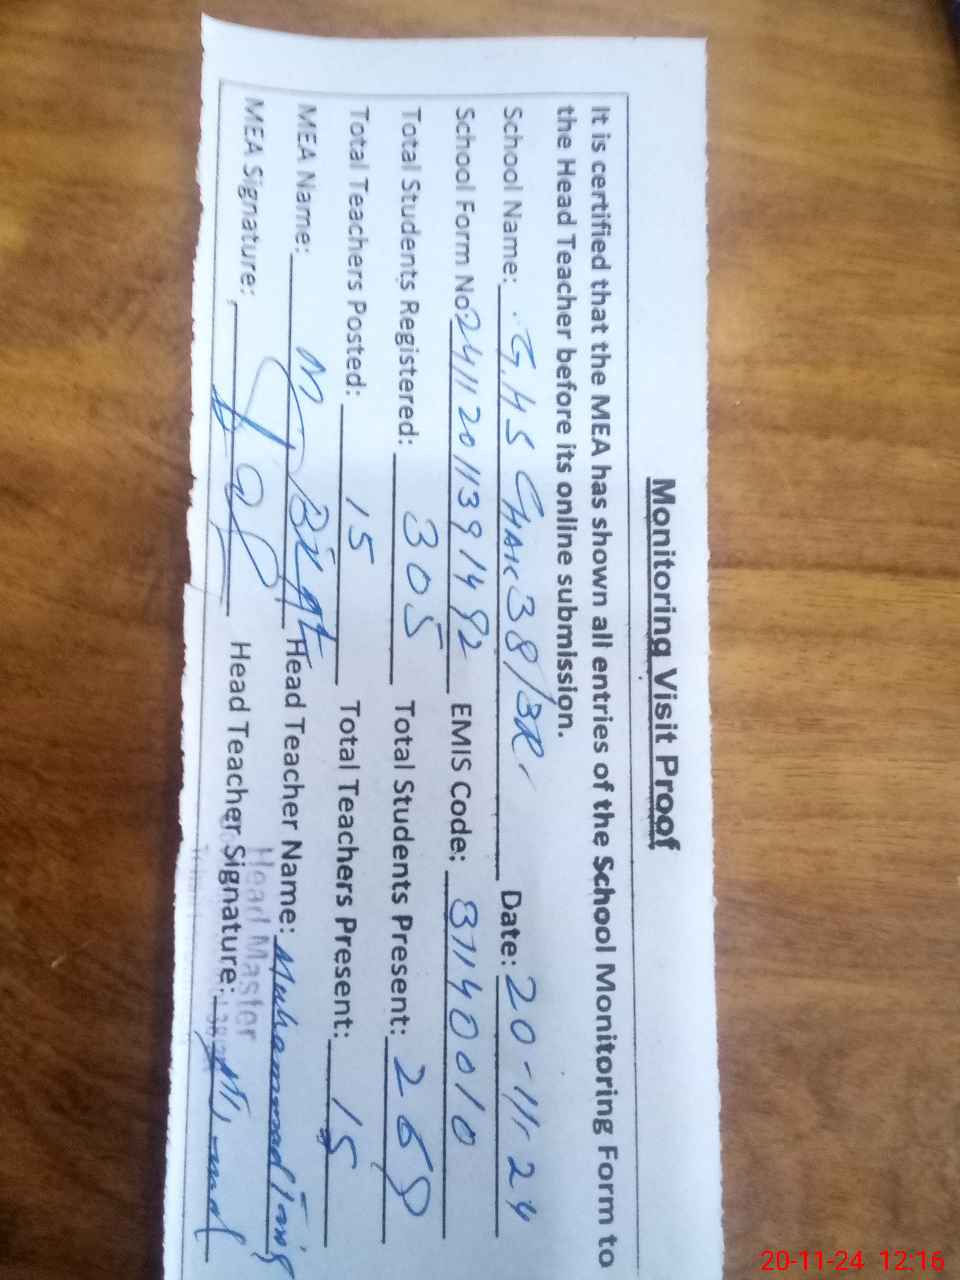 Monitoring Visit Proof
It is certified that the MEA has shown all entries of the School Monitoring Form to
the Head Teacher before its online submission.
School Name: G.H.S CHAK 38/3R. Date: 20-11-24
School Form No: 24112011391492 EMIS Code: 31140010
Total Students Registered: 305 Total Students Present: 269
Total Teachers Posted: 15 Total Teachers Present: 15
MEA Name: Head Teacher Name: Muhammad Tariq
MEA Signature: Head Teacher Signature:
Head Master
20-11-24 12:16